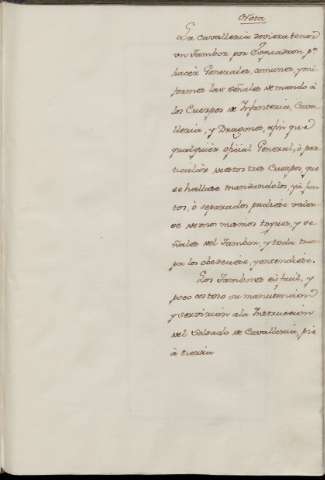 Nota
La Cavalleria deviera tener
un Tambor por Esquadron pª
hacer Generales, comunes, y uni
formes las señales de mando à
los Cuerpos de Infanteria, Cava
lleria, y Dragones, afin que
qualquier oficial General, ò par
ticular de estos tres Cuerpos, que
se hallase mandandolos yà jun
tos, ò separados pudiese valer
se de unos mismos toques, y se
ñales del Tambor, y toda tro
pa los obedeciese, y entendiese.
Los Tambores es util, y
poco costoso su manutencion
y servirian ala Instruccion
del Soldado de Cavalleria, pie
à tierra